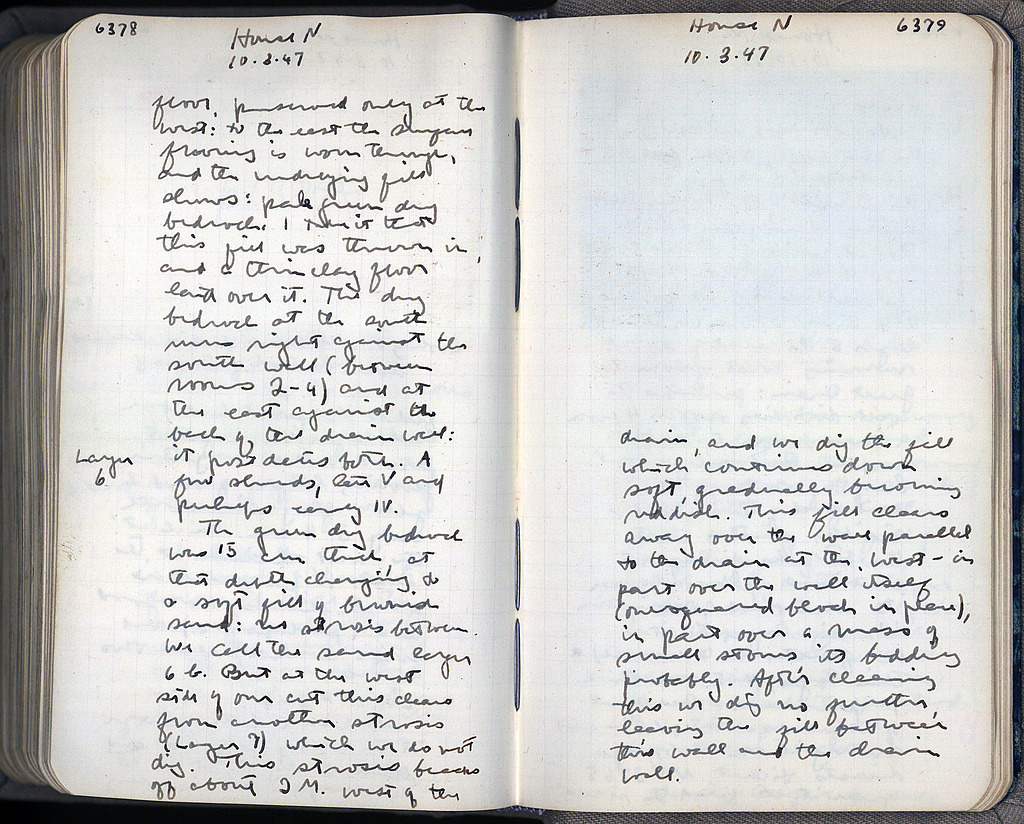 6378
House N
10.3.47
floor, preserved only at the
west: to the east the
flooring is worn through,
and the underlying fill
shows: pale green dug
bedrock. I think that
this fill was thrown in,
and a thin clay floor
laid over it. This dug
bedrock at the south
runs right against the
south wall (between
rooms 2-4) and at
the east against the
back of the drain wall:
Layer
6
it postdates both. A
few sherds, late V and
perhaps early IV.
The green dug bedrock
was 15 cm thick at
that depth changing to
a soft fill of brownish
sand: no strosis between.
We call the sand layer
6 b. But at the west
side of our cut this clears
from another strosis
(Layer 7) which we do not
dig. This strosis breaks
off about 2 M. west of the
House N
6379
10.3.47
drain, and we dig the fill
which continues down
soft, gradually becoming
reddish. This fill clears
away over the wall parallel
to the drain at the west - in
part over the wall itself
(one squared block in place),
in part over a mass of
small stones its bedding
probably. After cleaning
this we dig no further,
leaving the fill between
this wall and the drain
wall.